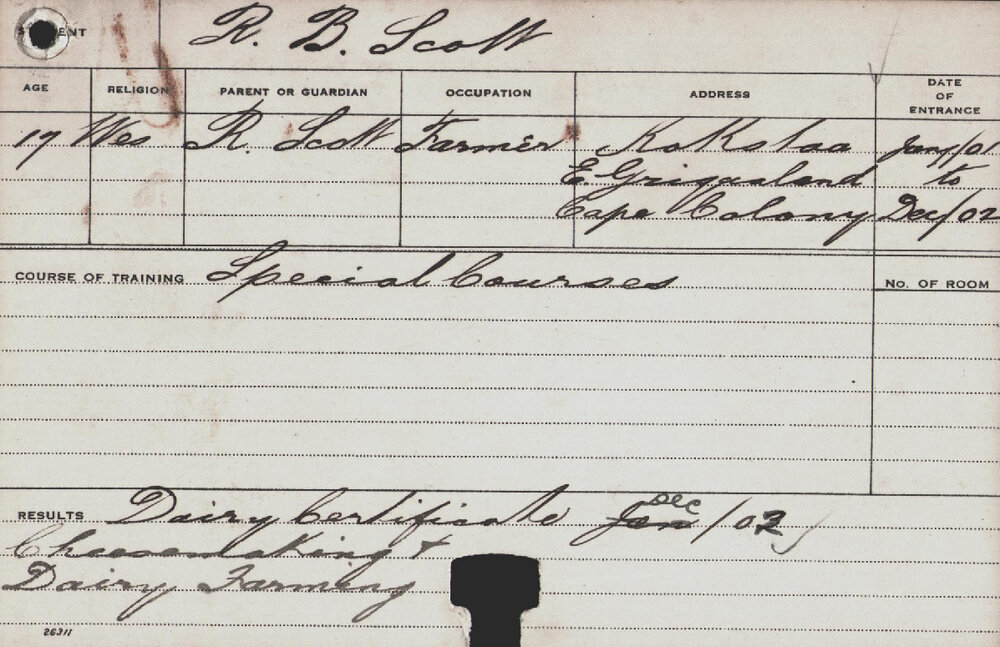 STUDENT R. B. Scott
AGE RELIGION PARENT OR GUARDIAN OCCUPATION ADDRESS DATE OF ENTRANCE
17 Wes R. Scott Farmer Kokstaa Jany/01
E. Griqualand to
Cape Colony Dec/02
COURSE OF TRAINING Special Courses No. OF ROOM
RESULTS Dairy Certificate Dec /02
Cheesemaking &
Dairy Farming
26311